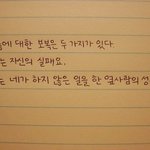 에 대한 보복은 두가지가 있다.
는 자신의 실패요,
는 네가 하지 않은 일을 한 옆사람의 성